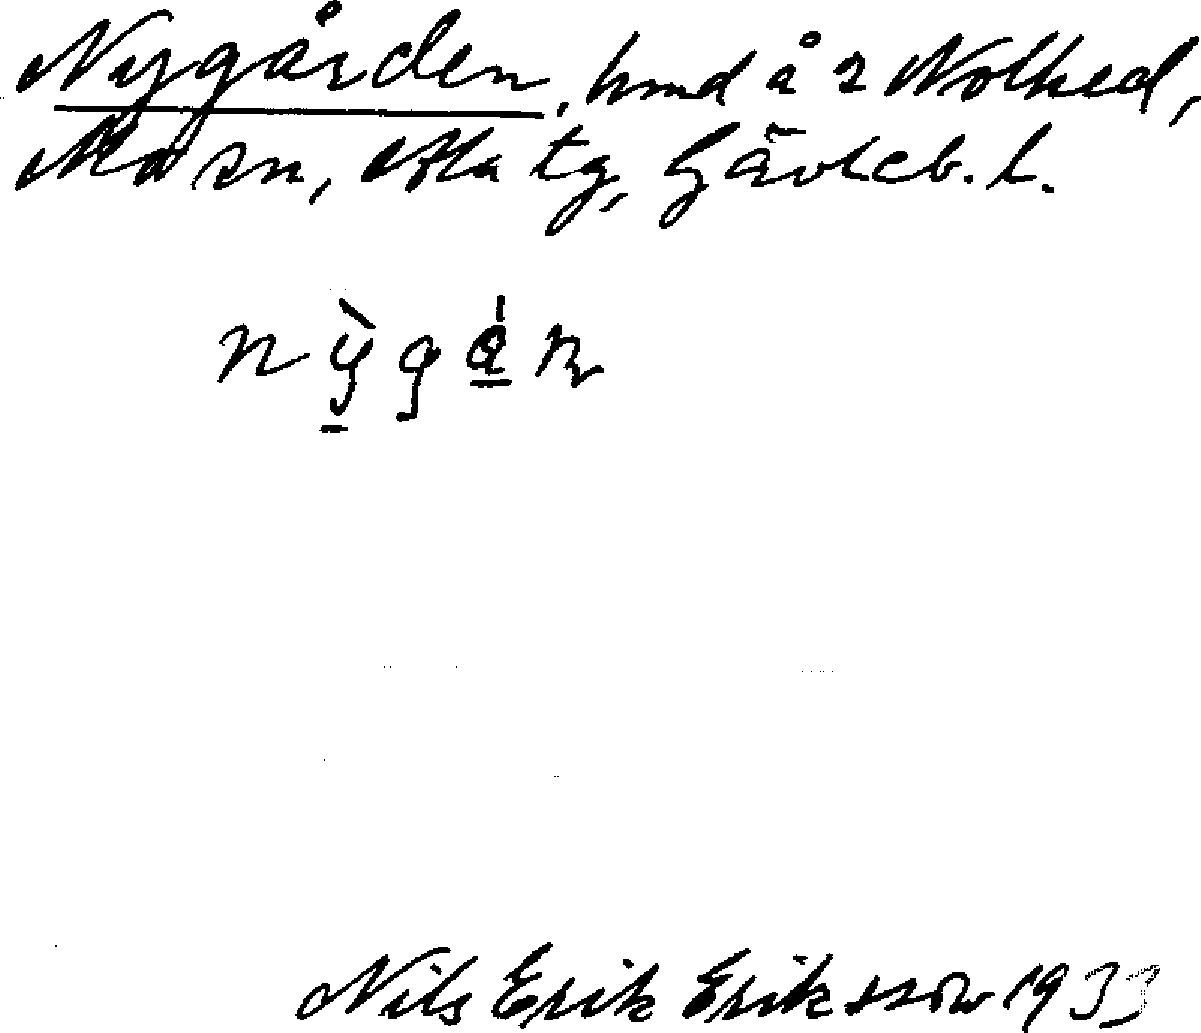 Nygården, hmd å 2 Nolhed,
Alfta sn, Alfta tg, Gävleb. l.
nỳgá̱n
Nils Erik Eriksson 1933